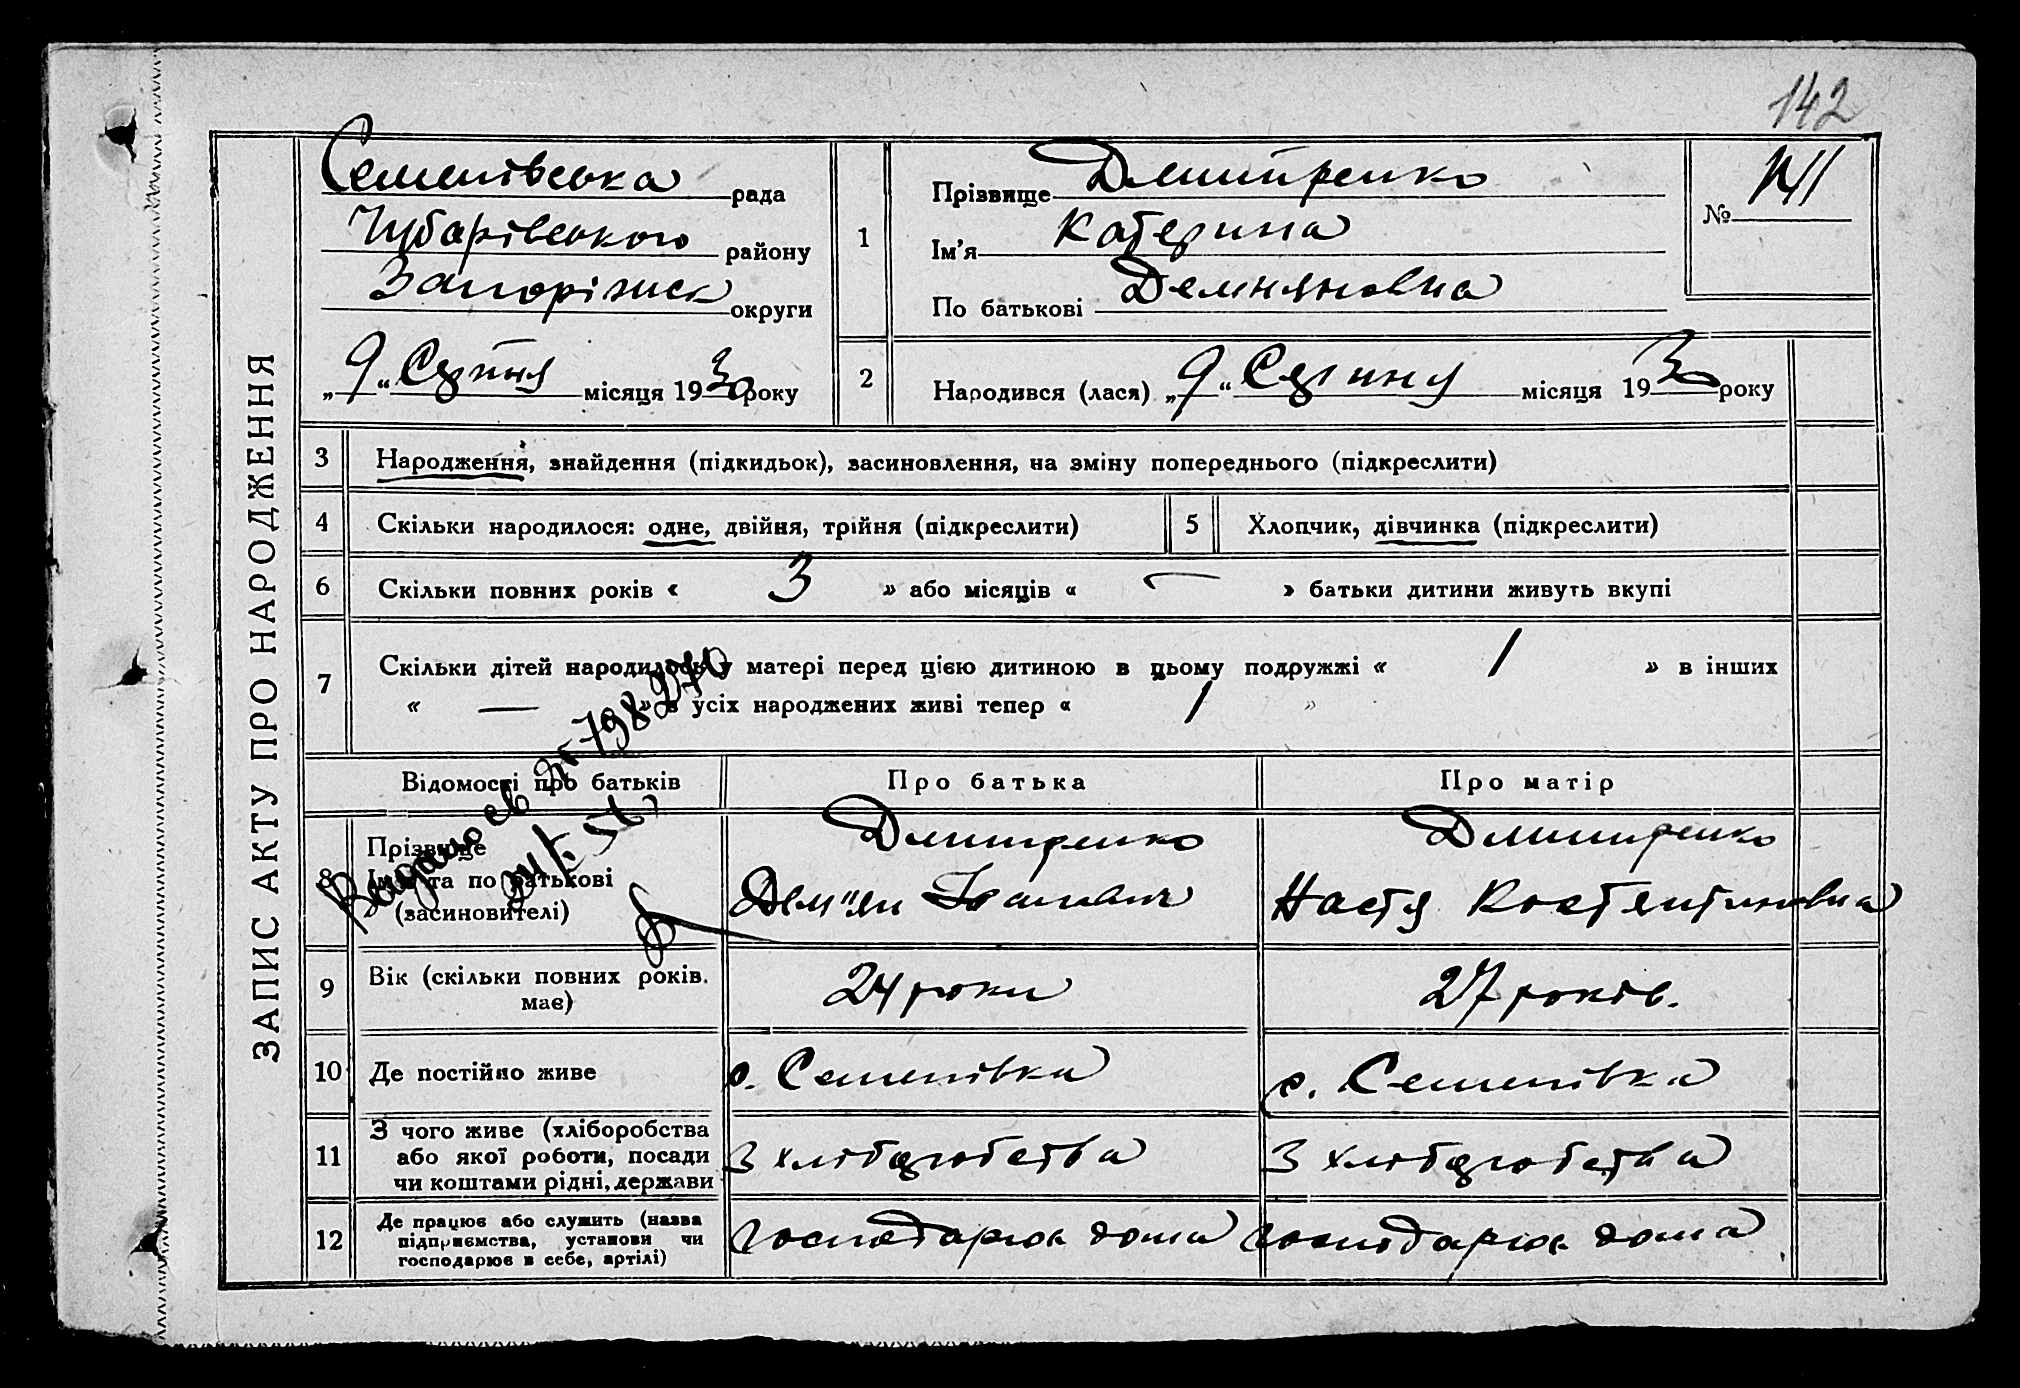 142
ЗАПИС АКТУ ПРО НАРОДЖЕННЯ
Семенівська рада
Чубарівського району
Запоріжск округи
„9“ Серпня місяця 1930 року
1
Прізвище Дмитренко
Ім'я Катерина
По батькові Демняновна
№ 141
2
Народився (лася) „9“ Серпня місяця 1930 року
3 Народження, знайдення (підкидьок), засиновлення, на зміну попереднього (підкреслити)
4 Скільки народилося: одне, двійня, трійня (підкреслити)
5 Хлопчик, дівчинка (підкреслити)
6 Скільки повних років « 3 » або місяців « — » батьки дитини живуть вкупі
7 Скільки дітей народилось у матері перед цією дитиною в цьому подружжі « 1 » в інших
« — » з усіх народжених живі тепер « 1 »
Відомості про батьків Про батька Про матір
8 Прізвище Дмитренко Дмитренко
Ім'я та по батькові Дем'ян Іванович Настя Костянтиновна
(засиновителі)
9 Вік (скільки повних років. має) 24 роки 27 років.
10 Де постійно живе с. Семенівка с. Семенівка
11 З чого живе (хліборобства
або якої роботи, посади
чи коштами рідні, держави з хліборобства з хліборобства
12 Де працює або служить (назва
підприємства, установи чи
господарює в себе, артілі) господарює дома господарює дома